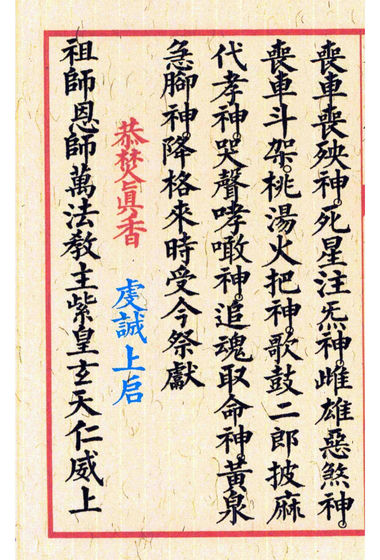 喪車喪殃神。死星注炁神。雌雄惡煞神。
喪車斗架。桃湯火把神。歌鼓二郎披麻
代孝神。哭聲哮噉神。追魂取命神。黃泉
急腳神。降格來時受今祭獻
恭焚眞香　虔誠上启
祖師恩師萬法教主紫皇玄天仁威上